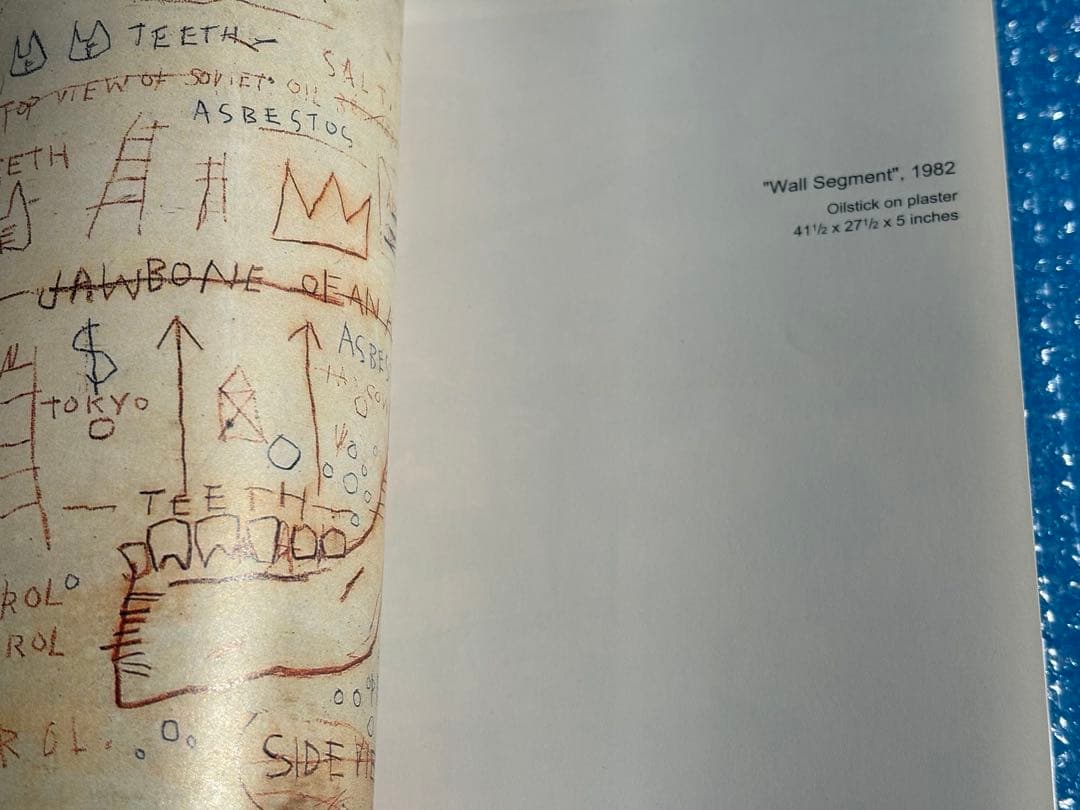 TEETH
SALT
TOP VIEW OF SOVIET OIL
ASBESTOS
EETH
JAWBONE OF AN
$
ASBES
TOKYO
TEETH
ROL
ROL
ROL.
SIDE
"Wall Segment", 1982
Oilstick on plaster
41 1/2 x 27 1/2 x 5 inches